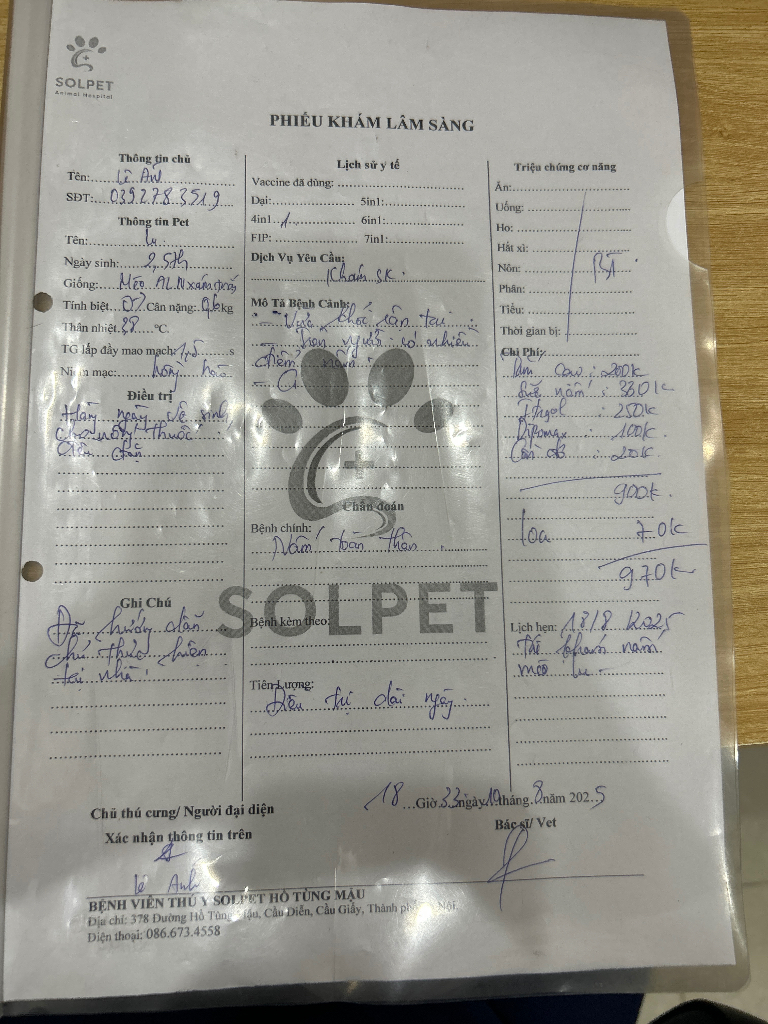 SOLPET
Animal Hospital
PHIẾU KHÁM LÂM SÀNG
Thông tin chủ
Tên: Lê Anh
SĐT: 039278.3519
Thông tin Pet
Tên: Lu
Ngày sinh: 2,5th
Giống: Mèo ALN xám
Tính biệt Cân nặng: 0,6 kg
Thân nhiệt 38 °C.
TG lấp đầy mao mạch: 1,5 s
Niêm mạc: hồng hào
Điều trị
Hàng ngày vệ sinh
thuốc
Ghi Chú
Đã hướng dẫn
chủ thực hiện
tại nhà
Lịch sử y tế
Vaccine đã dùng:
Dại: 5in1:
4in1 1 6in1:
FIP: 7in1:
Dịch Vụ Yêu Cầu:
Khám SK.
Mô Tả Bệnh Cảnh:
- tai
- có nhiều
điểm nấm
Chẩn đoán
Bệnh chính:
Nấm toàn thân
Bệnh kèm theo:
Tiên Lượng:
Điều trị dài ngày.
Triệu chứng cơ năng
Ăn:
Uống:
Ho:
Hắt xì:
Nôn: BT
Phân:
Tiểu:
Thời gian bị:
Chi Phí:
: 200k
nấm : 330k
: 250k
: 100k
: 200k
900k.
loa 70k
970k
Lịch hẹn: 18/8/2025
Tái khám nấm
mèo Lu
18 Giờ 33 ngày 10 tháng 8 năm 2025
Chủ thú cưng/ Người đại diện
Xác nhận thông tin trên
Lê Anh
Bác sĩ/ Vet
BỆNH VIỆN THÚ Y SOLPET HỒ TÙNG MẬU
Địa chỉ: 378 Đường Hồ Tùng Mậu, Cầu Diễn, Cầu Giấy, Thành phố Hà Nội.
Điện thoại: 086.673.4558
SOLPET